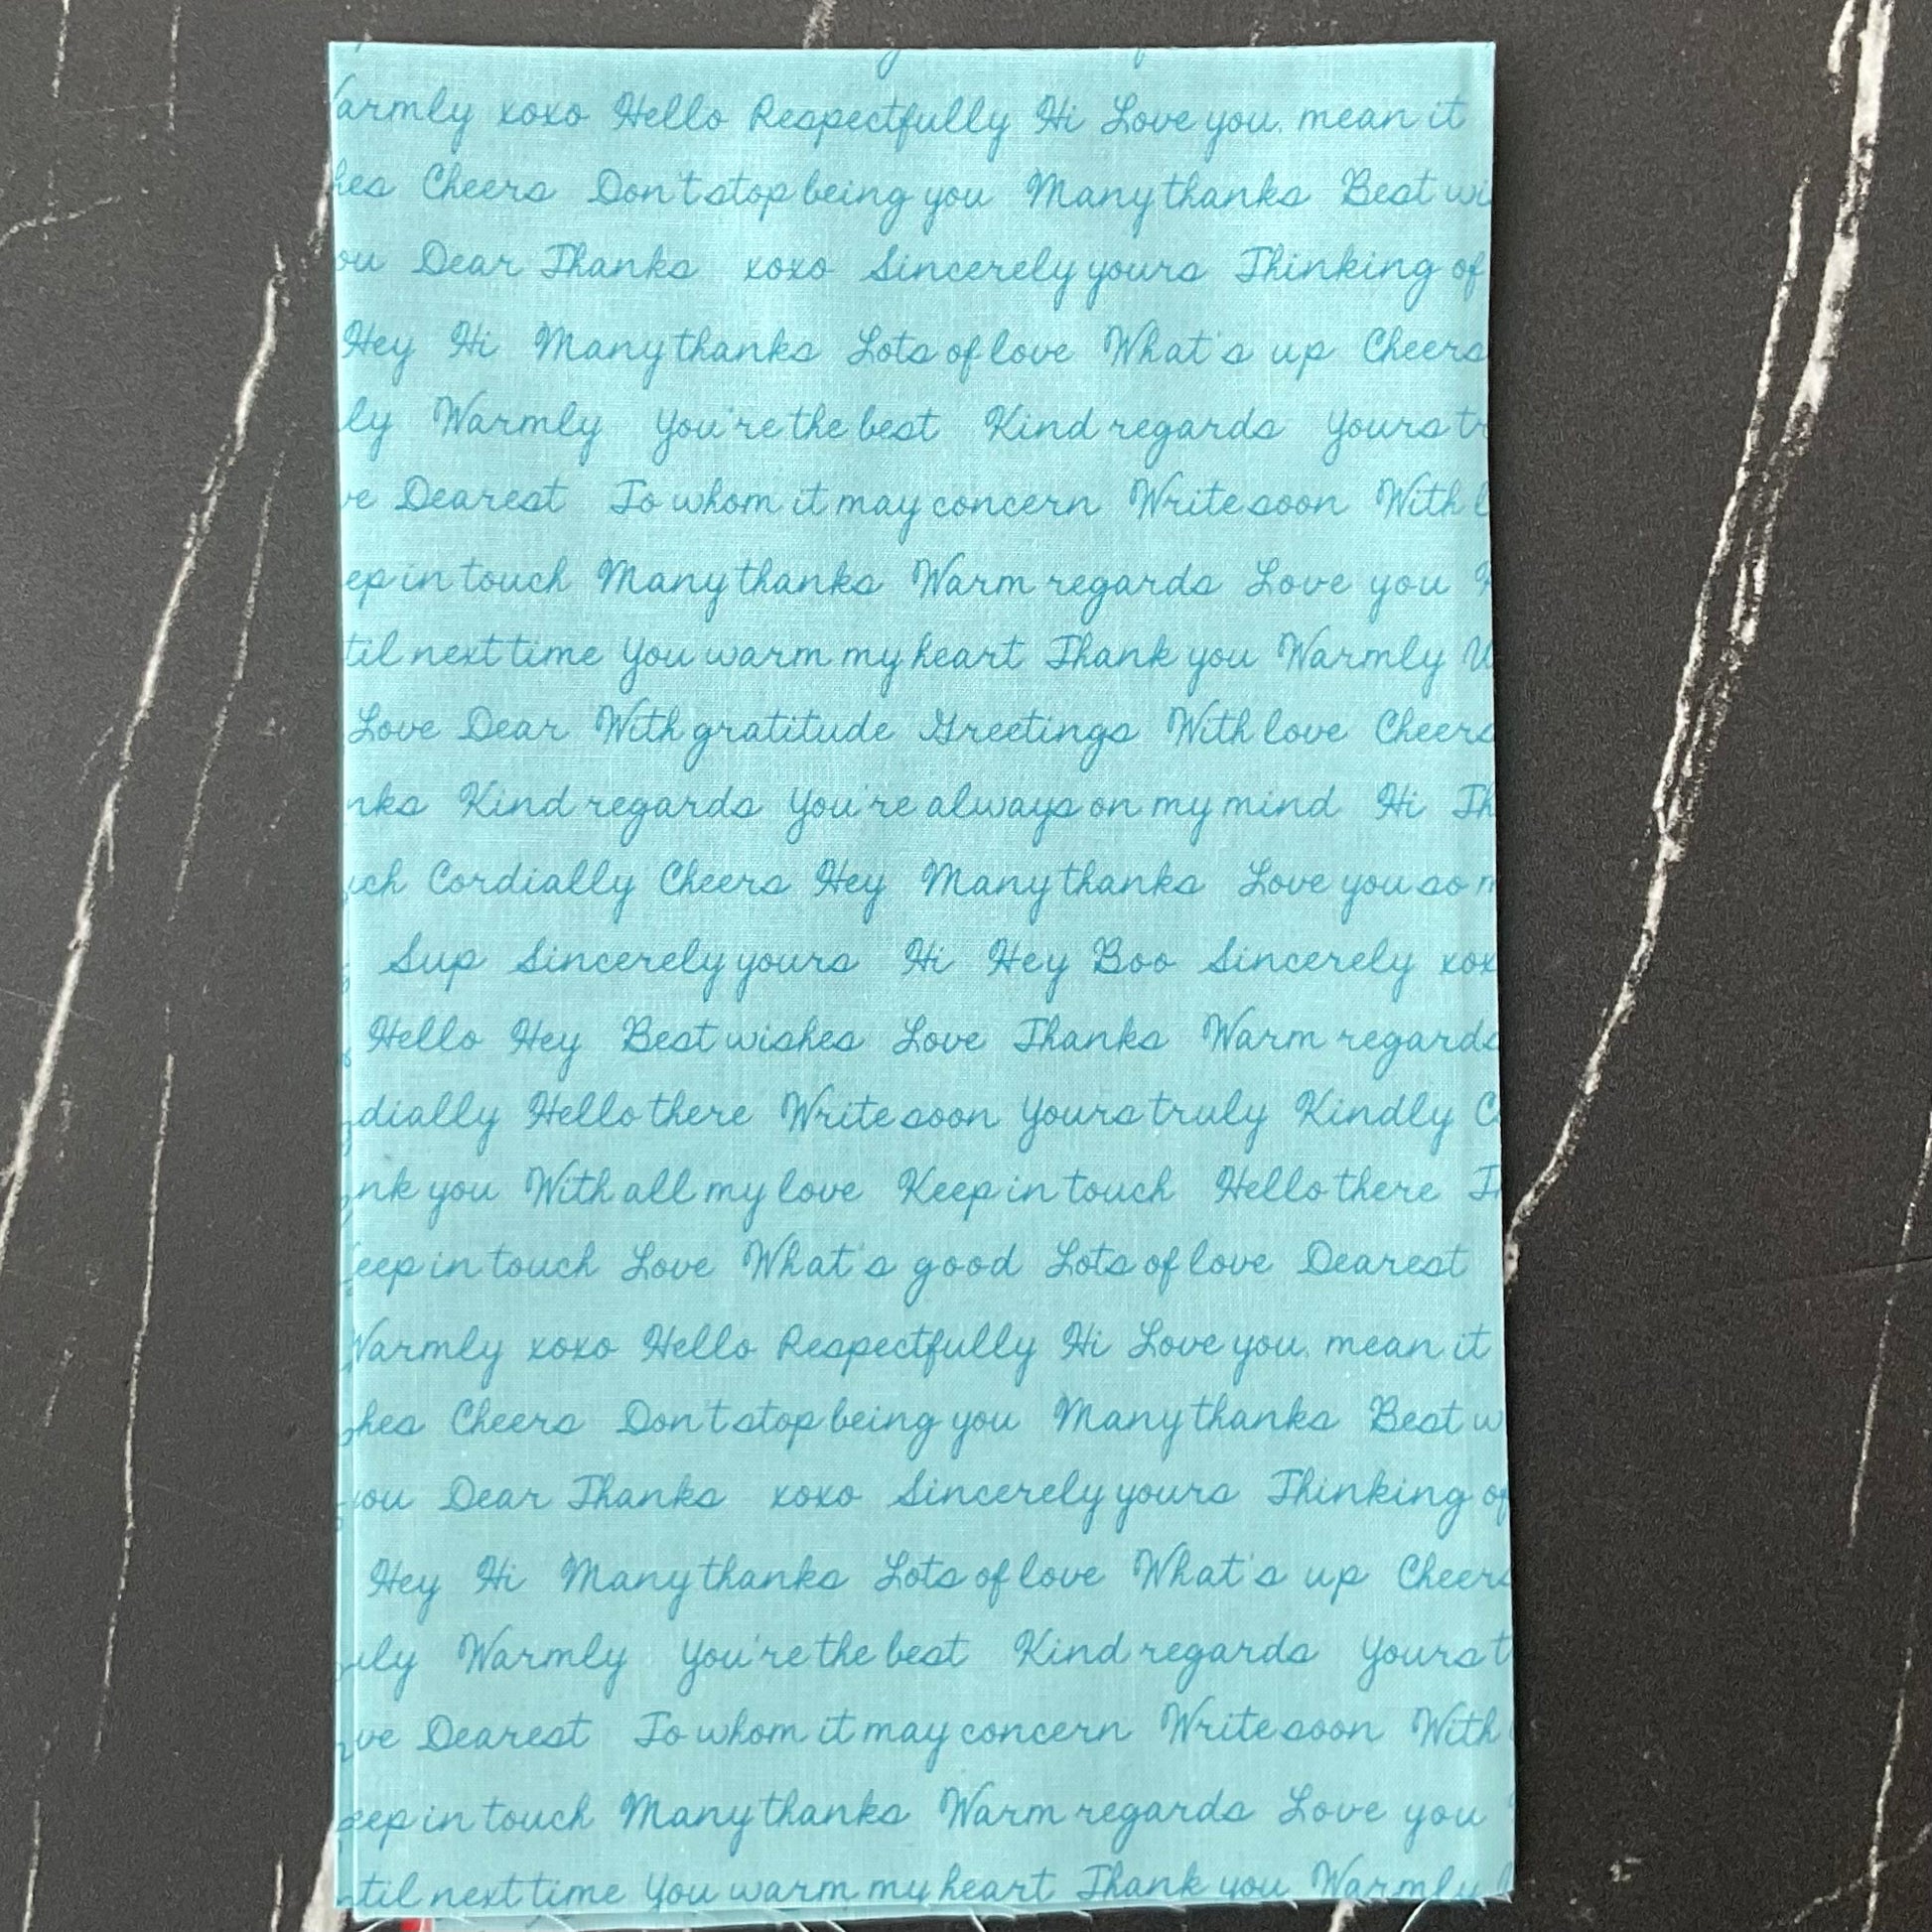 armly xoxo Hello Respectfully Hi Love you, mean it
hes Cheers Don't stop being you Many thanks Best wi
ou Dear Thanks xoxo Sincerely yours Thinking of
Hey Hi Many thanks Lots of love What's up Cheers
ly Warmly You're the best Kind regards Yours tr
ve Dearest To whom it may concern Write soon With l
ep in touch Many thanks Warm regards Love you
til next time You warm my heart Thank you Warmly U
Love Dear With gratitude Greetings With love Cheers
nks Kind regards You're always on my mind Hi Th
uch Cordially Cheers Hey Many thanks Love you so m
Sup Sincerely yours Hi Hey Boo Sincerely xox
Hello Hey Best wishes Love Thanks Warm regards
dially Hello there Write soon Yours truly Kindly C
nk you With all my love Keep in touch Hello there Th
eep in touch Love What's good Lots of love Dearest
Warmly xoxo Hello Respectfully Hi Love you, mean it
hes Cheers Don't stop being you Many thanks Best w
you Dear Thanks xoxo Sincerely yours Thinking of
Hey Hi Many thanks Lots of love What's up Cheers
ly Warmly You're the best Kind regards Yours t
ve Dearest To whom it may concern Write soon With
eep in touch Many thanks Warm regards Love you
til next time You warm my heart Thank you Warmly